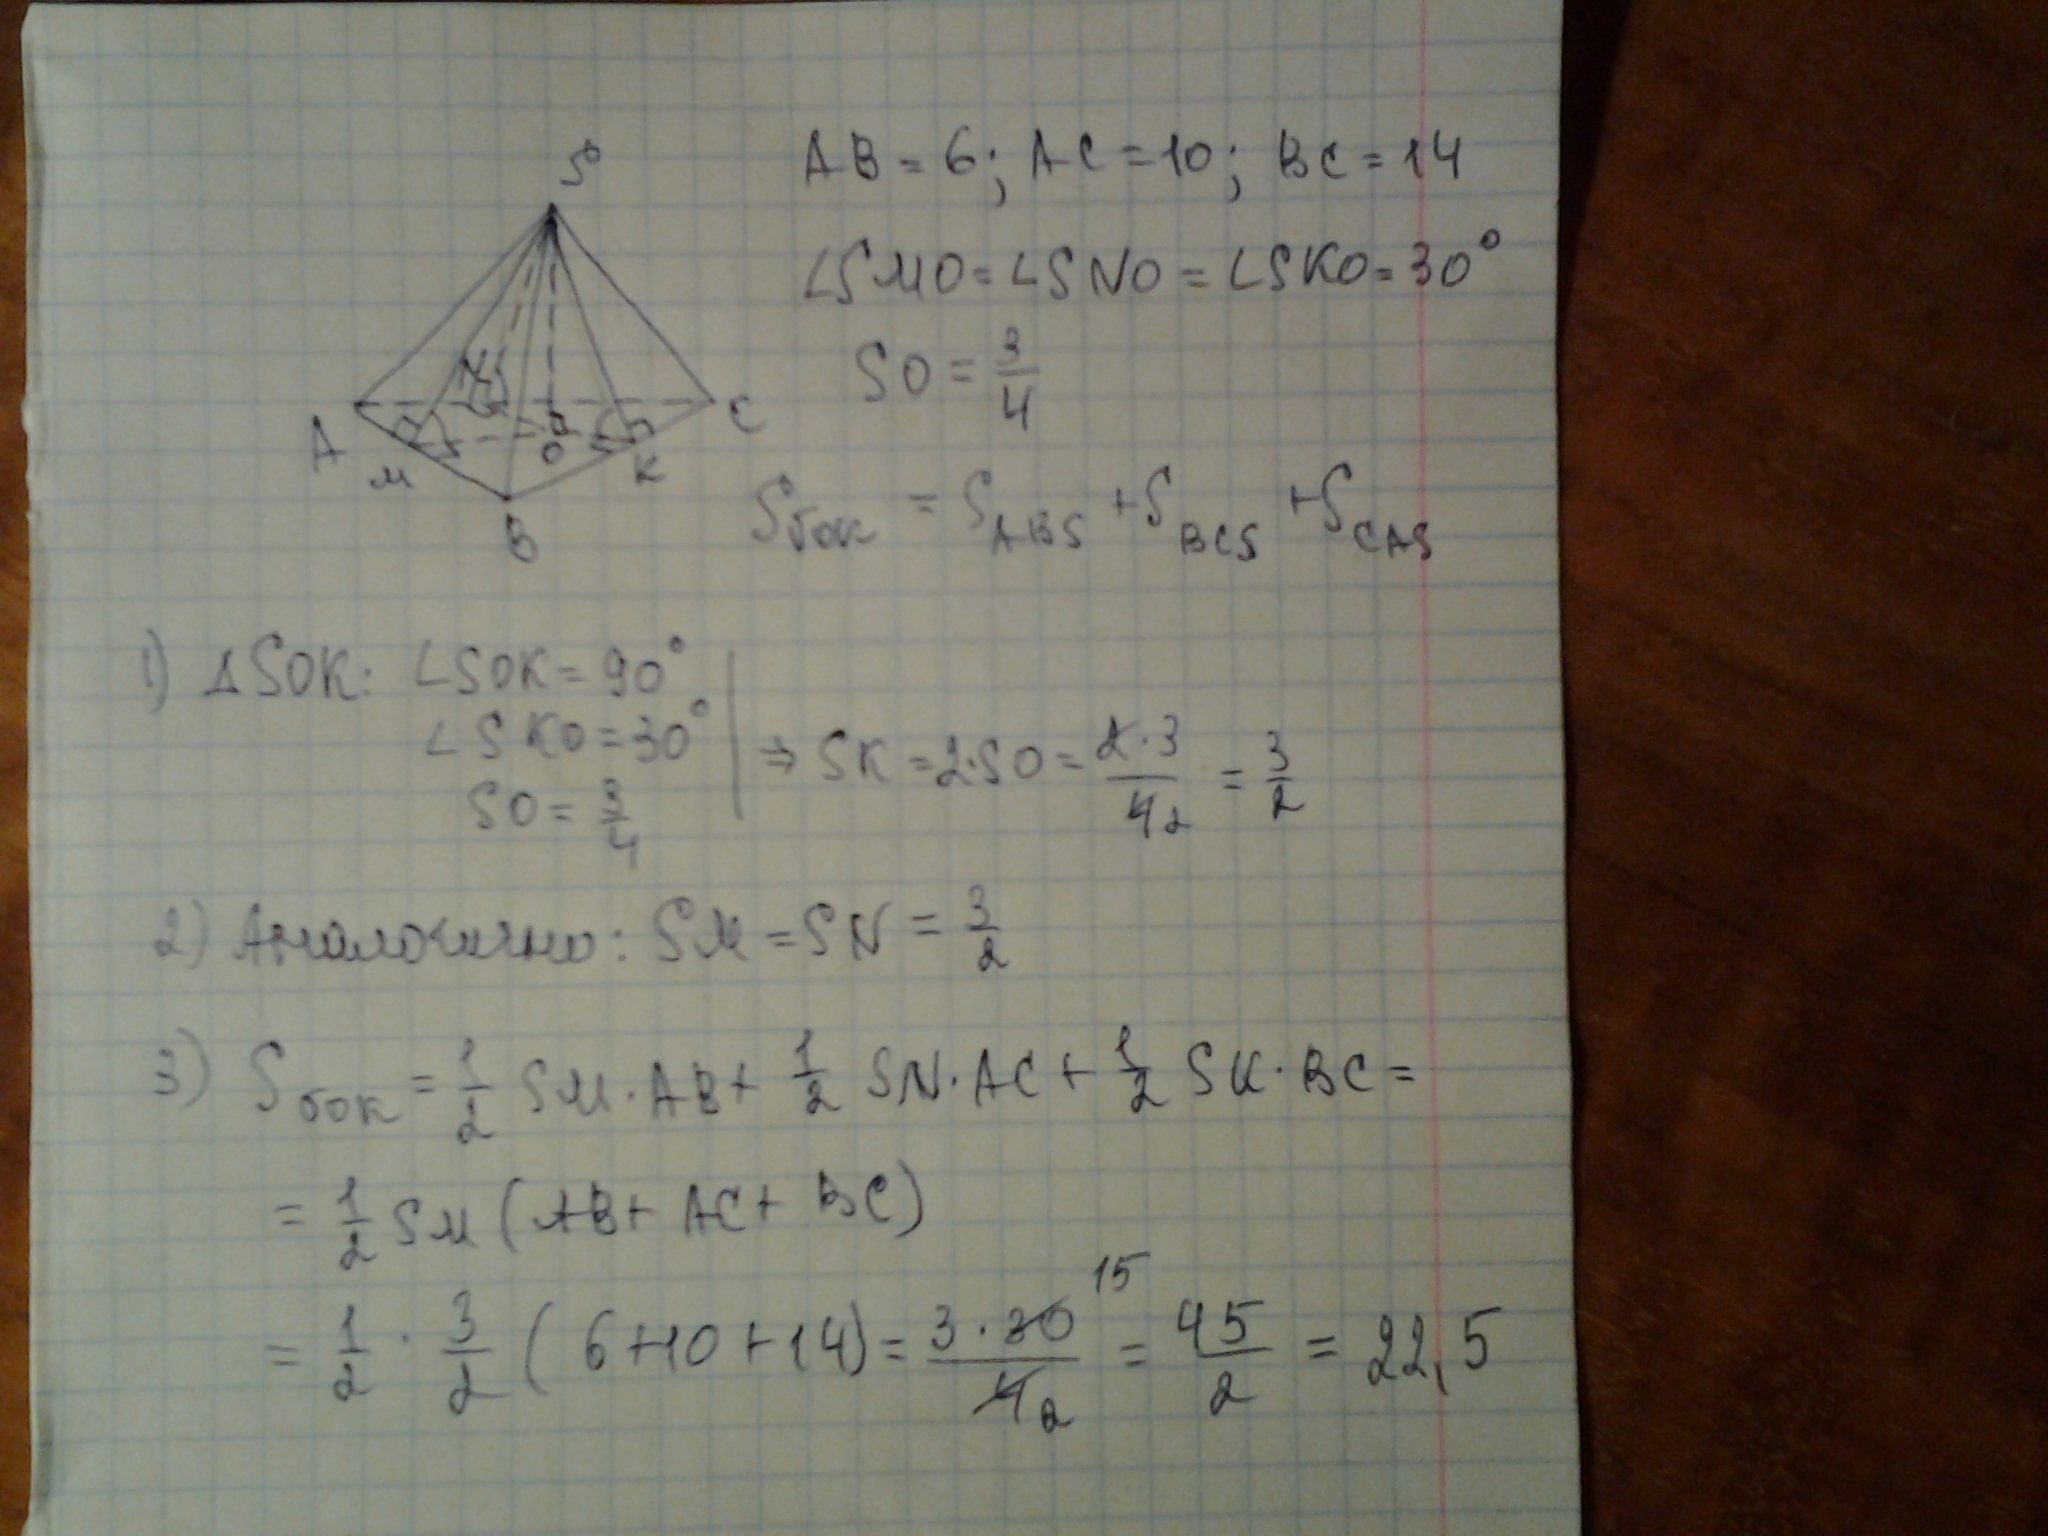 S
A
M
B
K
C
O
N
AB = 6; AC = 10; BC = 14
∠SMO = ∠SNO = ∠SKO = 30°
SO = 3/4
Sбок = S ABS + S BCS + S CAS
1) ΔSOK: ∠SOK = 90°
∠SKO = 30°
SO = 3/4
⇒ SK = 2·SO = 2·3/4 2 = 3/2
2) Аналогично: SM = SN = 3/2
3) Sбок = 1/2 SM·AB + 1/2 SN·AC + 1/2 SK·BC =
= 1/2 SM (AB + AC + BC)
= 1/2 · 3/2 (6+10+14) = 3·30 15/4 2 = 45/2 = 22,5